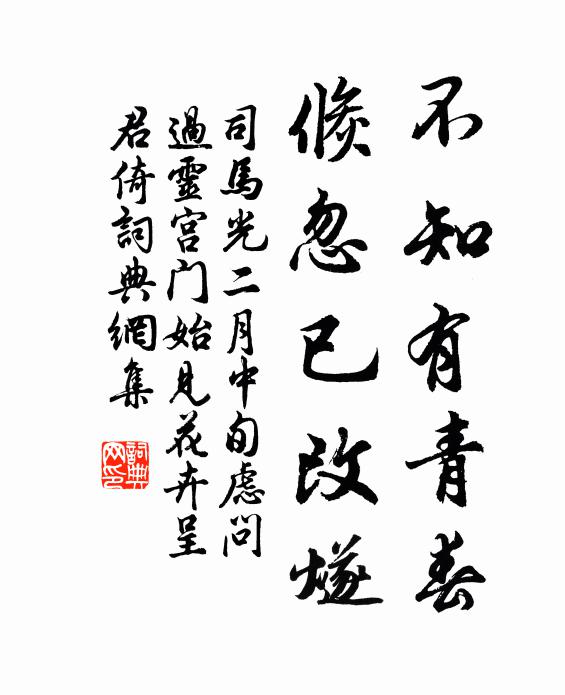 不知有青春
倏忽已改燧
司馬光二月中旬慮問
過靈宮门始見花卉呈
君倚詞典網集
詞典
网印